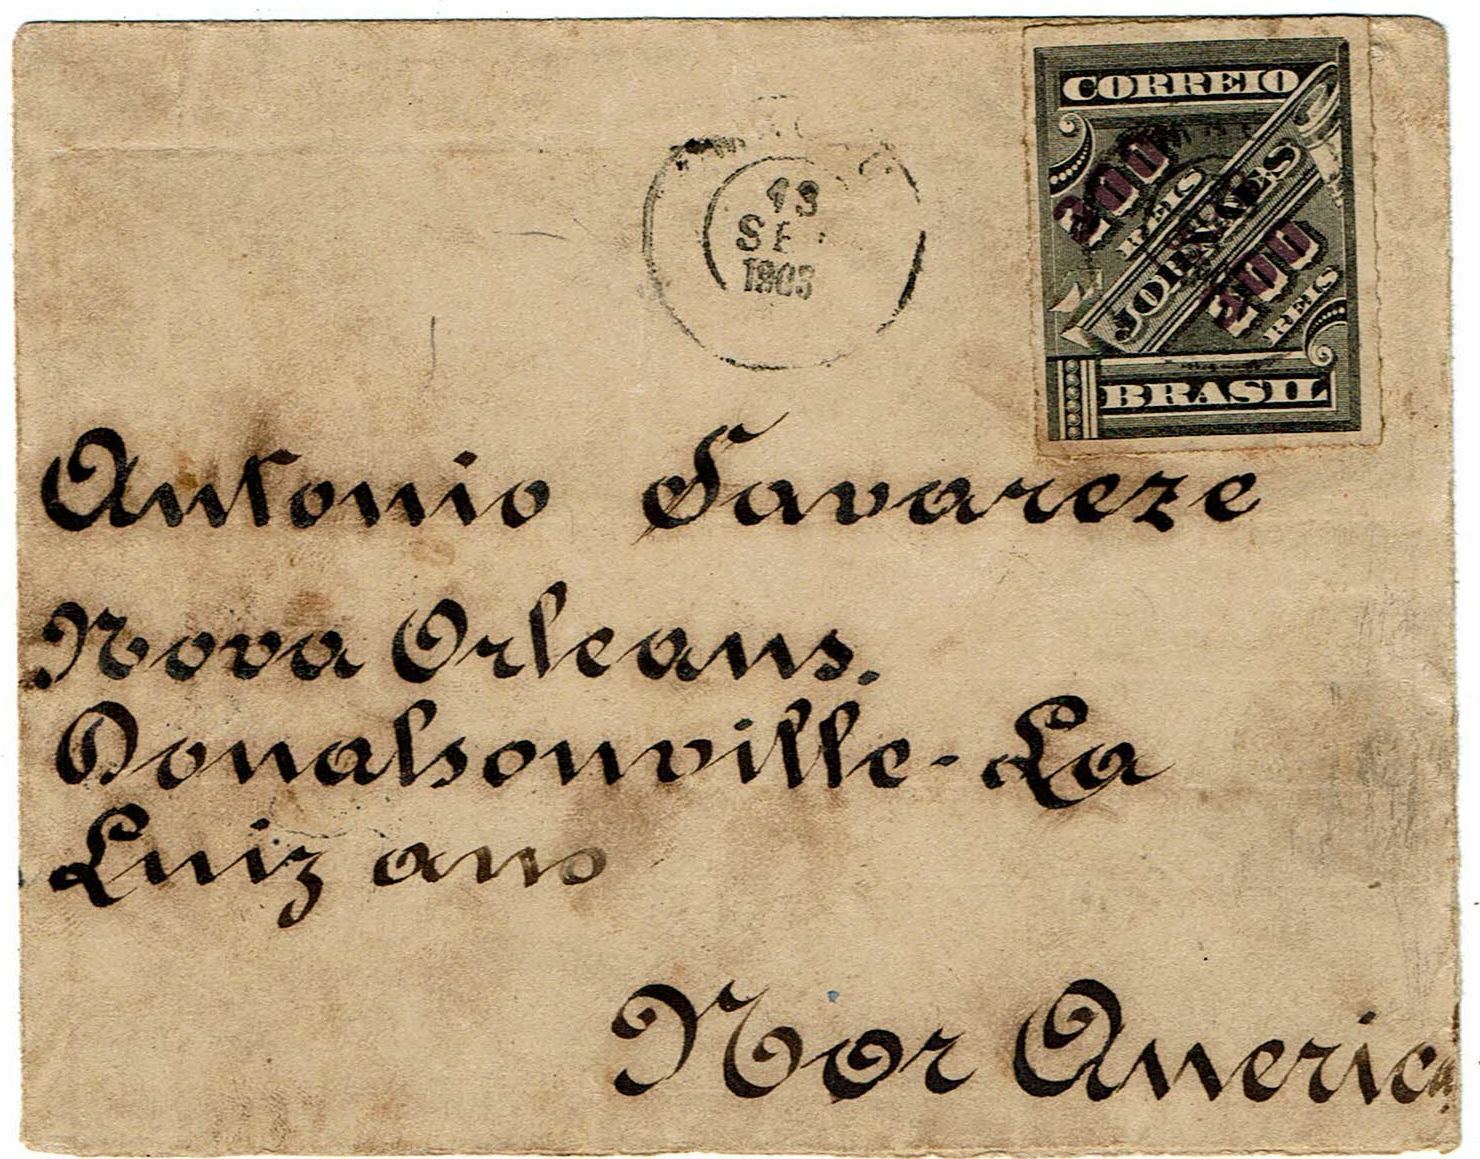 CORREIO
200
REIS
JORNAES
200
REIS
BRASIL
13
1903
Antonio Tavareze
Nova Orleans.
Donalsonville - La
Luiz ano
Nor America